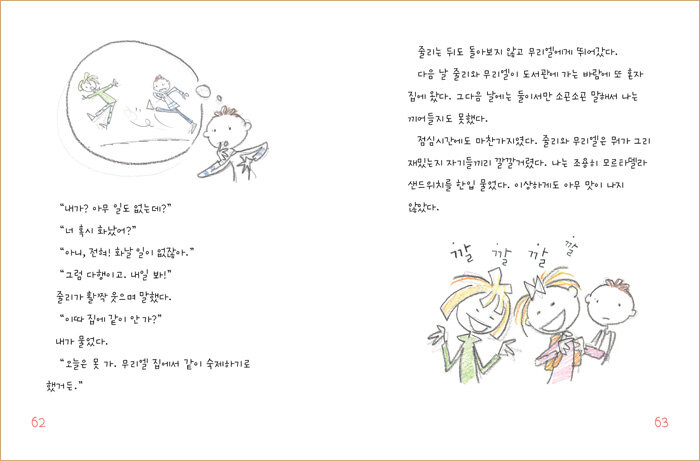 "내가? 아무 일도 없는데?"
"너 혹시 화났어?"
"아니, 전혀! 화날 일이 없잖아."
"그럼 다행이고. 내일 봐!"
줄리가 활짝 웃으며 말했다.
"이따 집에 같이 안 가?"
내가 물었다.
"오늘은 못 가. 무리엘 집에서 같이 숙제하기로
했거든."
62
줄리는 뒤도 돌아보지 않고 무리엘에게 뛰어갔다.
다음 날 줄리와 무리엘이 도서관에 가는 바람에 또 혼자
집에 왔다. 그다음 날에는 둘이서만 소곤소곤 말해서 나는
끼어들지도 못했다.
점심시간에도 마찬가지였다. 줄리와 무리엘은 뭐가 그리
재밌는지 자기들끼리 깔깔거렸다. 나는 조용히 모르타델라
샌드위치를 한입 물었다. 이상하게도 아무 맛이 나지
않았다.
깔 깔 깔 깔
63